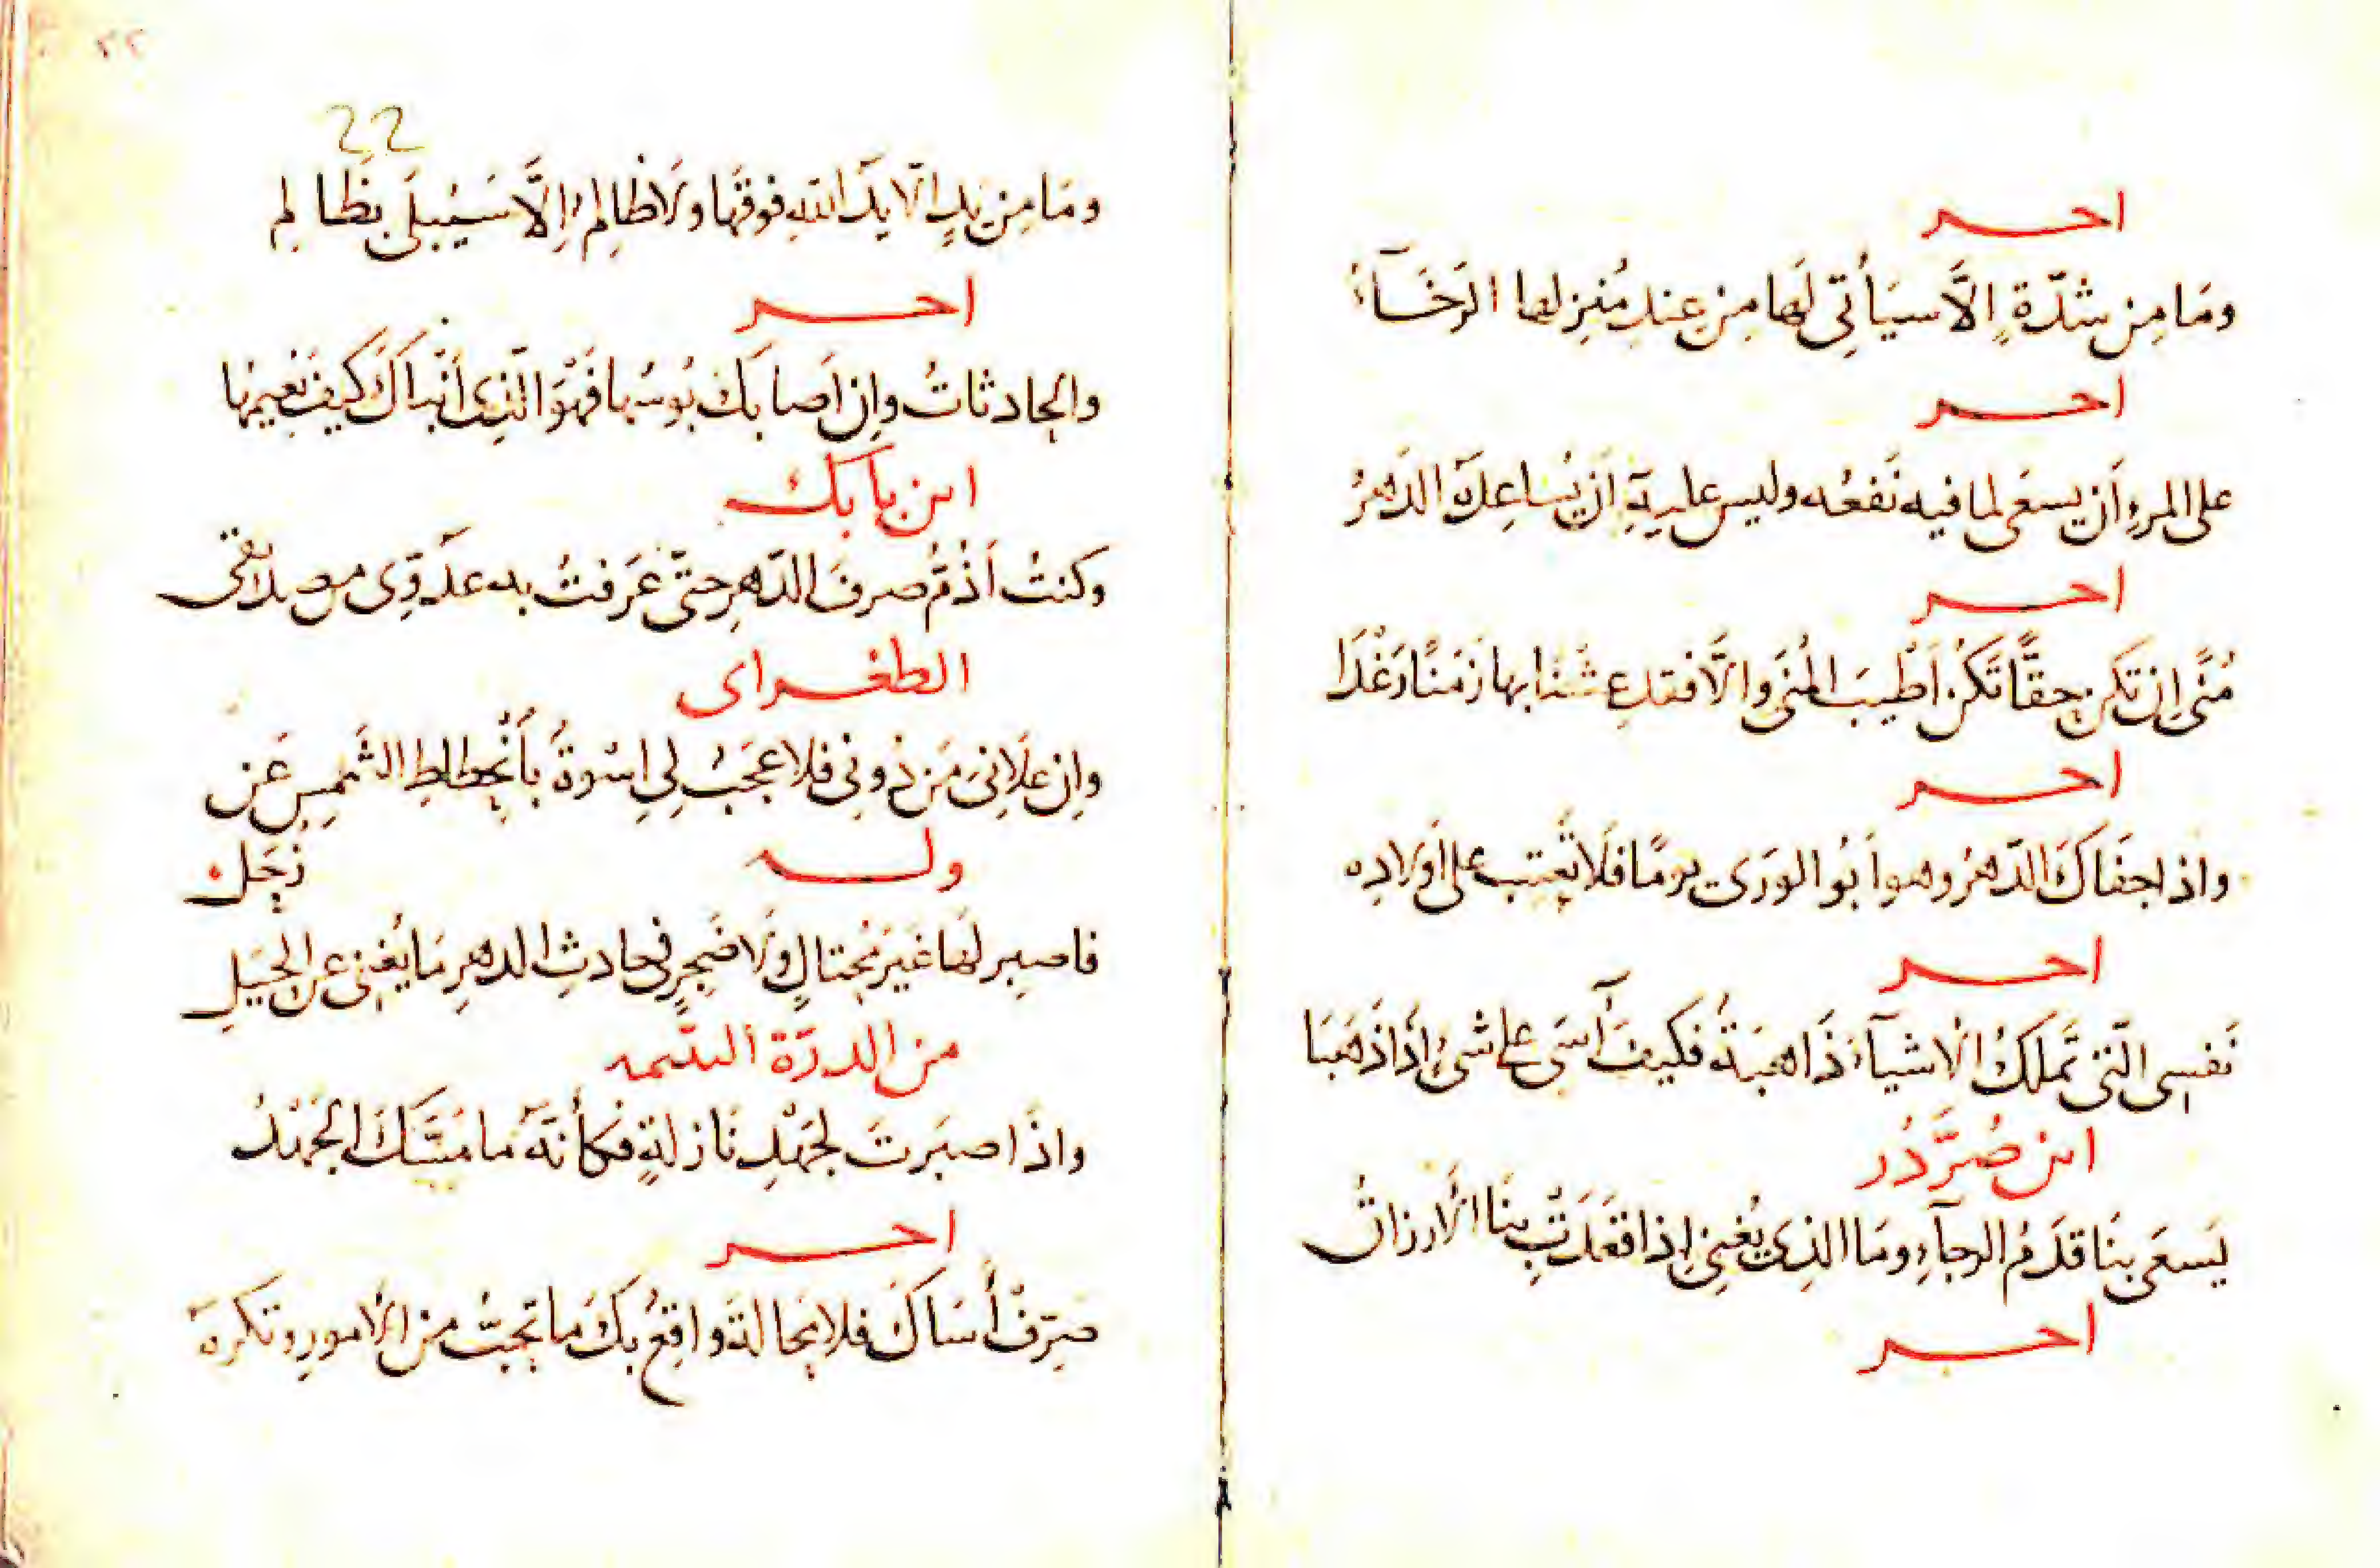 اخر
ومَا مِن شدّةٍ إلاَّ سيَأتي لَها مِن عِندِ مُنزِلها الرَخَآءُ
اخر
على المرءِ أَن يسعَى لما فيه نَفعُه وليس عليهِ أن يُساعِدَهُ الدَهرُ
اخر
مُنًى إن تكن حقًّا تَكُن أَطْيبَ المُنَى والاَّ فقد عِشْنَا بها زَمَنًا رَغْدَا
اخر
واذا جفَاكَ الدّهرُ وهو أَبُو الورَى يومًا فلَا تَعتِب على أَولادِه
اخر
نَفسِى التى تَملكُ الأشيآءَ ذَاهبَةٌ فكيفَ آسَى على شىءٍ إذَا ذَهَبَا
ابن صُرَّدُر
يَسعَى بِنَا قدَمُ الرجآءِ ومَا الذِى يُغنِى إذا قعَدَتْ بِنَا الأرزاقُ
اخر
٢٢
22
ومَا مِن يدٍ الّا يدُ اللّهِ فوقَهَا ولَا ظالِمٍ إلَّا سَيُبلَى بظَالمِ
اخر
والحادثاتُ وإن أَصابَكَ بُوسُهَا فَهْوَ الّذِى أَنْباكَ كيفَ نَعِيمُها
ابن بابَك
وكنتُ أَذُمُّ صرفَ الدّهرِ حتّى عَرَفتُ به عدُوِّى من صديقى
الطغراى
وإن علَانِىَ مَن دُونِى فلا عجَبٌ لِى اسْوةٌ بأنْحِطاطِ الشَمسِ عَن
زُحَلِ
وله
فاصبِر لَها غَيرَ مُحتالٍ ولَا ضَجِرٍ فى حادثِ الدهرِ مَا يُغنِى عنِ الحِيَلِ
من الدرّة اليتيمه
واذَا صبَرتَ لجَهْدِ نَازلةٍ فكأنّهُ ما مَسَّكَ الجَهْدُ
اخر
صَرِّفْ أَسَاكَ فلا محَالةَ واقِعٌ بكَ ما تُحبُّ من الأمورِ وتكرهُ